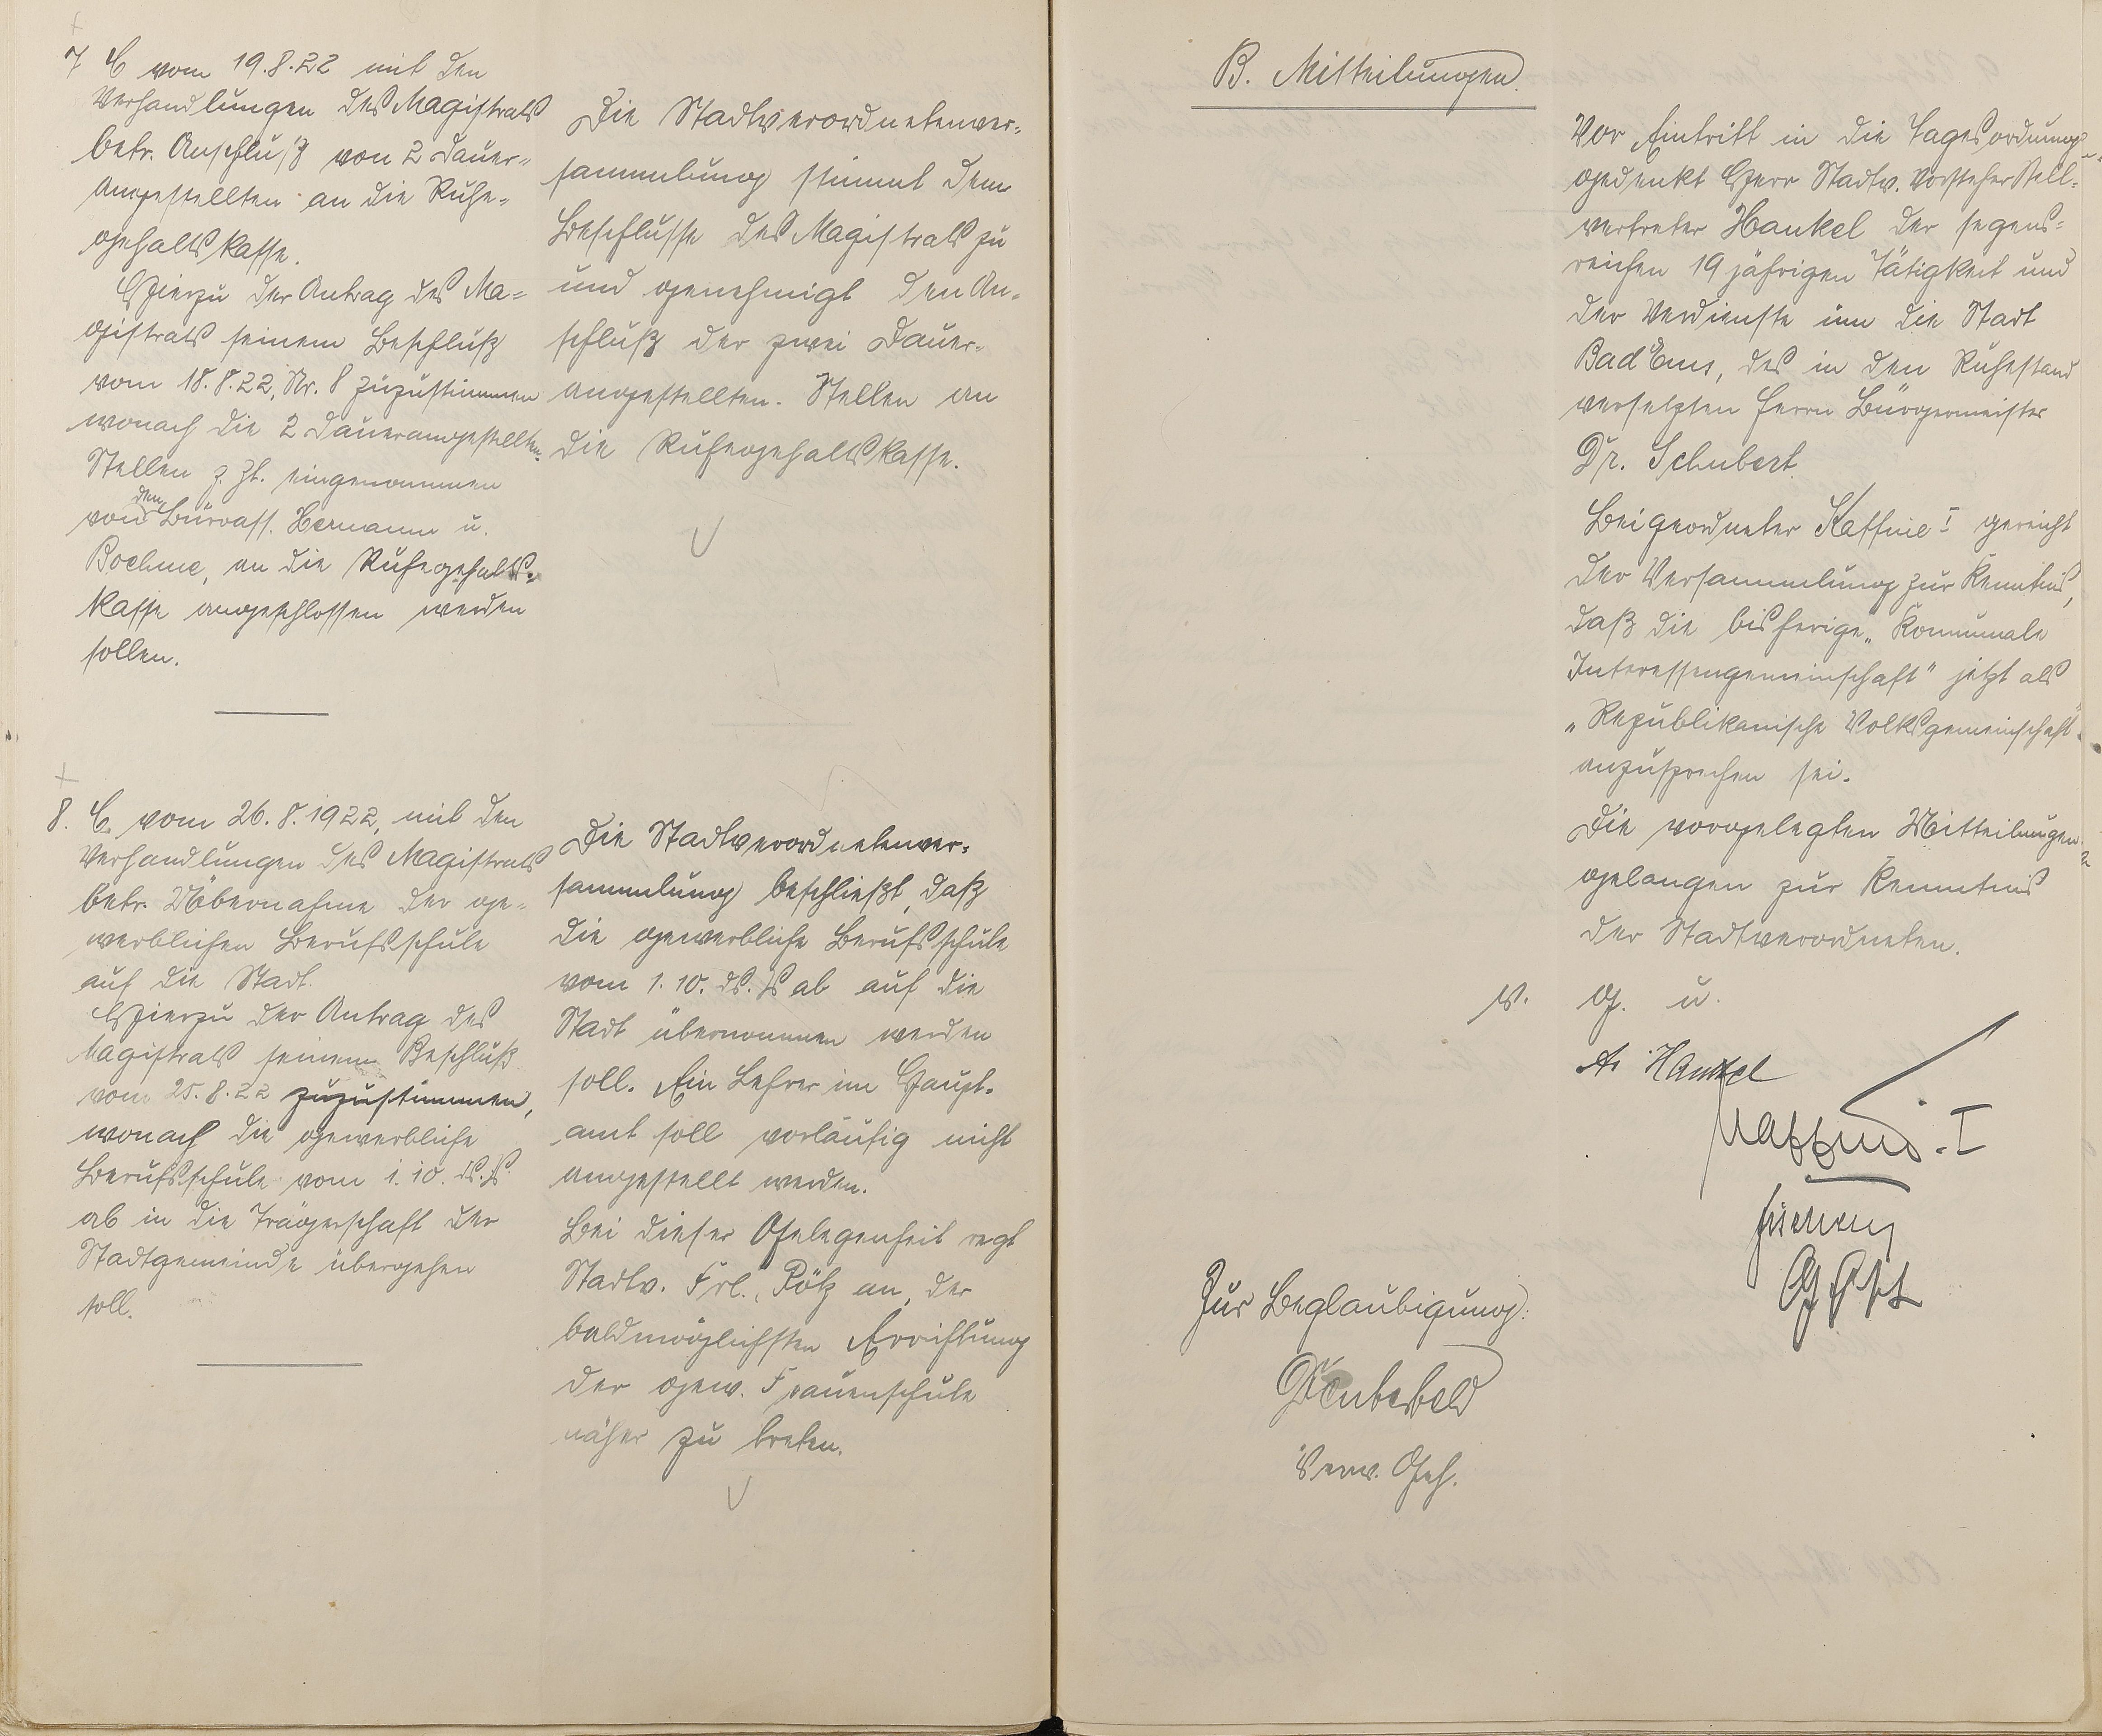 7 E vom 19.8.22 mit den
Verhandlungen des Magistrats
betr. Anschluß von 2 Dauer-
angestellten an die Ruhe-
gehaltskasse.
Hierzu der Antrag des Ma-
gistrats seinem Beschluß
vom 18.8.22, Nr. 8 zuzustimmen
wonach die 2 Dauerangestellten-
Stellen z. Zt. eingenommen
von den Büroass. Hermann u.
Boehme, an die Ruhegehalts-
kasse angeschlossen werden
sollen.
Die Stadtverordnetenver-
sammlung stimmt dem
Beschlusse des Magistrats zu
und genehmigt den An-
schluß der zwei Dauer-
angestellten-Stellen an
die Ruhegehaltskasse.
8. E. vom 26.8.1922, mit den
Verhandlungen des Magistrats
betr. Übernahme der ge-
werblichen Berufsschule
auf die Stadt.
Hierzu der Antrag des
Magistrats seinem Beschluß
vom 25.8.22 zuzustimmen,
wonach die gewerbliche
Berufsschule vom 1.10. ds. Js.
ab in die Trägerschaft der
Stadtgemeinde übergehen
soll.
Die Stadtverordnetenver-
sammlung beschließt, daß
die gewerbliche Berufsschule
vom 1.10. ds. Js ab auf die
Stadt übernommen werden
soll. Ein Lehrer im Haupt-
amt soll vorläufig nicht
angestellt werden.
Bei dieser Gelegenheit regt
Stadtv. Frl. Pötz an, der
baldmöglichsten Errichtung
der gew. Frauenschule
näher zu treten.
B. Mitteilungen.
Vor Eintritt in die Tagesordnung
gedenkt Herr Stadtv. Vorsteher Stell-
vertreter Hankel der segens-
reichen 19 jährigen Tätigkeit und
der Verdienste um die Stadt
Bad Ems, des in den Ruhestand
versetzten Herrn Bürgermeister
Dr. Schubert.
Beigeordneter Kaffine I gereicht
der Versammlung zur Kenntnis,
daß die bisherige „Kommunale
Interessengemeinschaft" jetzt als
„Republikanische Volksgemeinschaft"
anzusprechen sei.
Die vorgelegten Mitteilungen
gelangen zur Kenntnis
der Stadtverordneten.
v. g. u.
A. Hankel
Kaffine I
Zur Beglaubigung:
Verw. Geh.